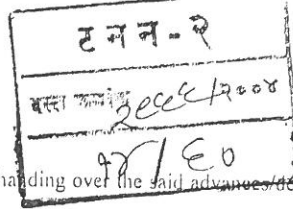 ट न न - २
दस्त क्रमांक २९९९/२००४
१४ / ६०
handing over the said advances/de